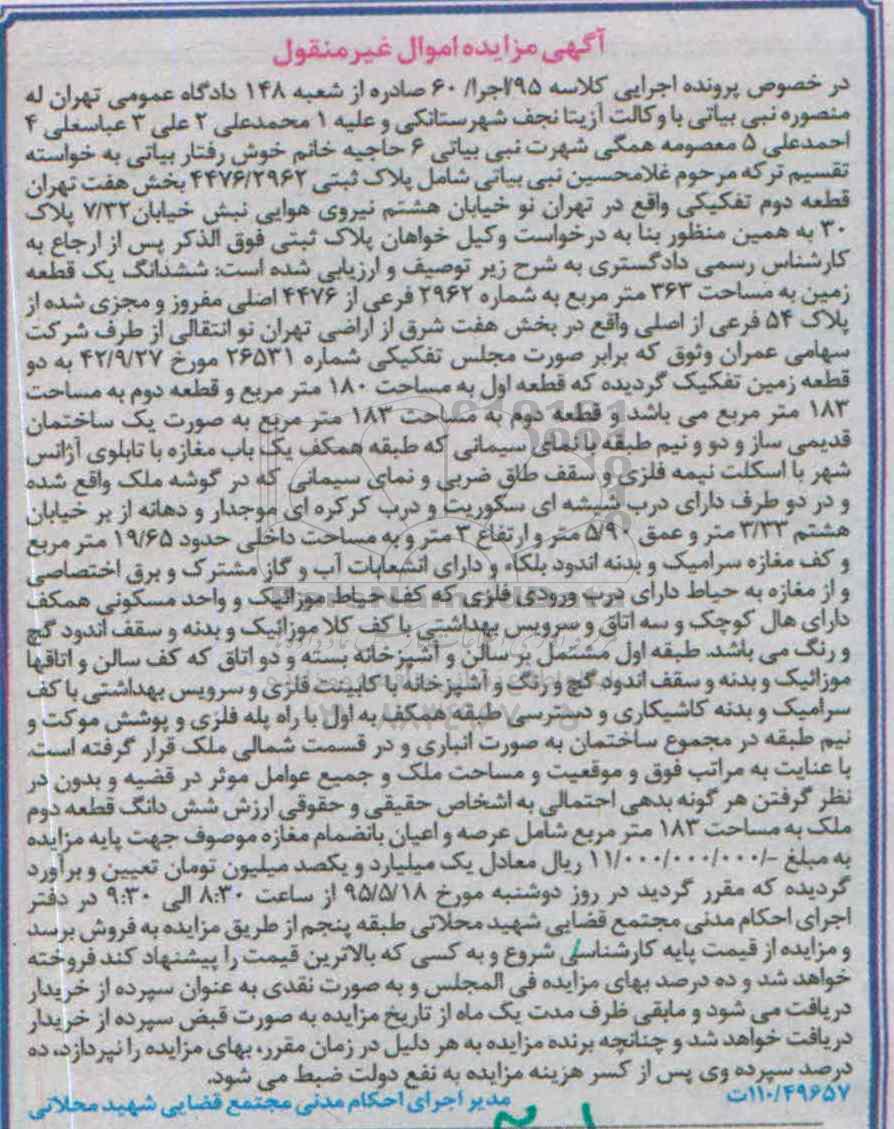 آگهی مزایده اموال غیرمنقول
در خصوص پرونده اجرایی کلاسه ۹۵/اجرا/ ۶۰ صادره از شعبه ۱۴۸ دادگاه عمومی تهران له
منصوره نبی بیاتی با وکالت آزیتا نجف شهرستانکی و علیه ۱ محمدعلی ۲ علی ۳ عباسعلی ۴
احمدعلی ۵ معصومه همگی شهرت نبی بیاتی ۶ حاجیه خانم خوش رفتار بیاتی به خواسته
تقسیم ترکه مرحوم غلامحسین نبی بیاتی شامل پلاک ثبتی ۴۴۷۶/۲۹۶۲ بخش هفت تهران
قطعه دوم تفکیکی واقع در تهران نو خیابان هشتم نیروی هوایی نبش خیابان۷/۳۲ پلاک
۳۰ به همین منظور بنا به درخواست وکیل خواهان پلاک ثبتی فوق الذکر پس از ارجاع به
کارشناس رسمی دادگستری به شرح زیر توصیف و ارزیابی شده است: ششدانگ یک قطعه
زمین به مساحت ۳۶۳ متر مربع به شماره ۲۹۶۲ فرعی از ۴۴۷۶ اصلی مفروز و مجزی شده از
پلاک ۵۴ فرعی از اصلی واقع در بخش هفت شرق از اراضی تهران نو انتقالی از طرف شرکت
سهامی عمران وثوق که برابر صورت مجلس تفکیکی شماره ۲۶۵۳۱ مورخ ۴۲/۹/۲۷ به دو
قطعه زمین تفکیک گردیده که قطعه اول به مساحت ۱۸۰ متر مربع و قطعه دوم به مساحت
۱۸۳ متر مربع می باشد و قطعه دوم به مساحت ۱۸۳ متر مربع به صورت یک ساختمان
قدیمی ساز و دو و نیم طبقه با نمای سیمانی که طبقه همکف یک باب مغازه با تابلوی آژانس
شهر با اسکلت نیمه فلزی و سقف طاق ضربی و نمای سیمانی که در گوشه ملک واقع شده
و در دو طرف دارای درب شیشه ای سکوریت و درب کرکره ای موجدار و دهانه از بر خیابان
هشتم ۳/۳۳ متر و عمق ۵/۹۰ متر و ارتفاع ۳ متر و به مساحت داخلی حدود ۱۹/۶۵ متر مربع
و کف مغازه سرامیک و بدنه اندود بلکاء و دارای انشعابات آب و گاز مشترک و برق اختصاصی
و از مغازه به حیاط دارای درب ورودی فلزی که کف حیاط موزائیک و واحد مسکونی همکف
دارای هال کوچک و سه اتاق و سرویس بهداشتی با کف کلا موزائیک و بدنه و سقف اندود گچ
و رنگ می باشد. طبقه اول مشتمل بر سالن و آشپزخانه بسته و دو اتاق که کف سالن و اتاقها
موزائیک و بدنه و سقف اندود گچ و رنگ و آشپزخانه با کابینت فلزی و سرویس بهداشتی با کف
سرامیک و بدنه کاشیکاری و دسترسی طبقه همکف به اول با راه پله فلزی و پوشش موکت و
نیم طبقه در مجموع ساختمان به صورت انباری و در قسمت شمالی ملک قرار گرفته است.
با عنایت به مراتب فوق و موقعیت و مساحت ملک و جمیع عوامل موثر در قضیه و بدون در
نظر گرفتن هر گونه بدهی احتمالی به اشخاص حقیقی و حقوقی ارزش شش دانگ قطعه دوم
ملک به مساحت ۱۸۳ متر مربع شامل عرصه و اعیان بانضمام مغازه موصوف جهت پایه مزایده
به مبلغ -/۱۱/۰۰۰/۰۰۰/۰۰۰ ریال معادل یک میلیارد و یکصد میلیون تومان تعیین و برآورد
گردیده که مقرر گردید در روز دوشنبه مورخ ۹۵/۵/۱۸ از ساعت ۸:۳۰ الی ۹:۳۰ در دفتر
اجرای احکام مدنی مجتمع قضایی شهید محلاتی طبقه پنجم از طریق مزایده به فروش برسد
و مزایده از قیمت پایه کارشناسی شروع و به کسی که بالاترین قیمت را پیشنهاد کند فروخته
خواهد شد و ده درصد بهای مزایده فی المجلس و به صورت نقدی به عنوان سپرده از خریدار
دریافت می شود و مابقی ظرف مدت یک ماه از تاریخ مزایده به صورت قبض سپرده از خریدار
دریافت خواهد شد و چنانچه برنده مزایده به هر دلیل در زمان مقرر، بهای مزایده را نپردازد، ده
درصد سپرده وی پس از کسر هزینه مزایده به نفع دولت ضبط می شود.
۱۱۰/۴۹۶۵۷ت
مدیر اجرای احکام مدنی مجتمع قضایی شهید محلاتی